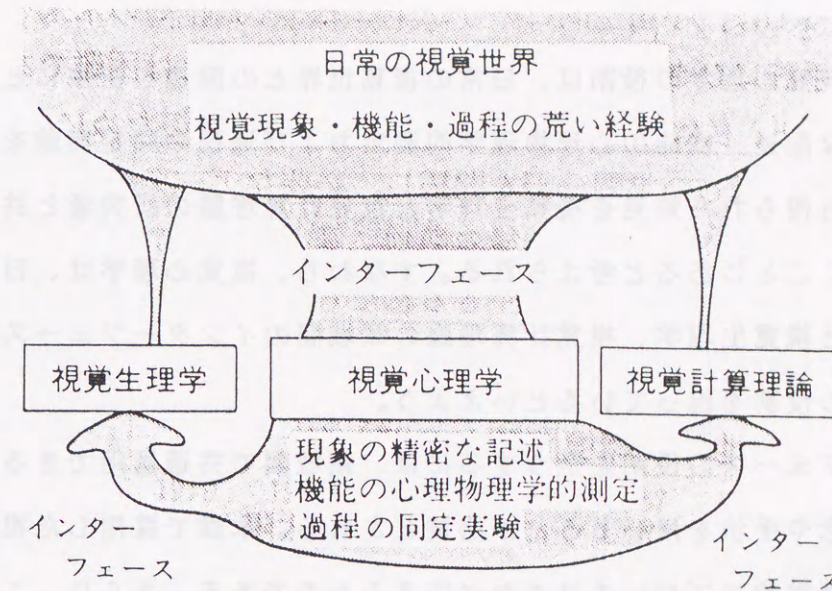 日常の視覚世界
視覚現象・機能・過程の荒い経験
インターフェース
視覚生理学
視覚心理学
視覚計算理論
現象の精密な記述
機能の心理物理学的測定
過程の同定実験
インター
フェース
インター
フェース